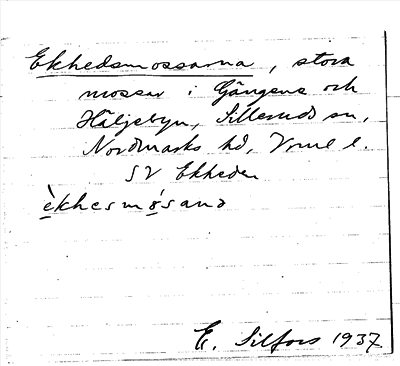 Ekhedsmossarna, stora
mossar i Gängene och
Häljebyn, Silleruds sn,
Nordmarks hd, Vrml l.
SV Ekheden
èkhesmo̱sanə
E. Silfors 1937